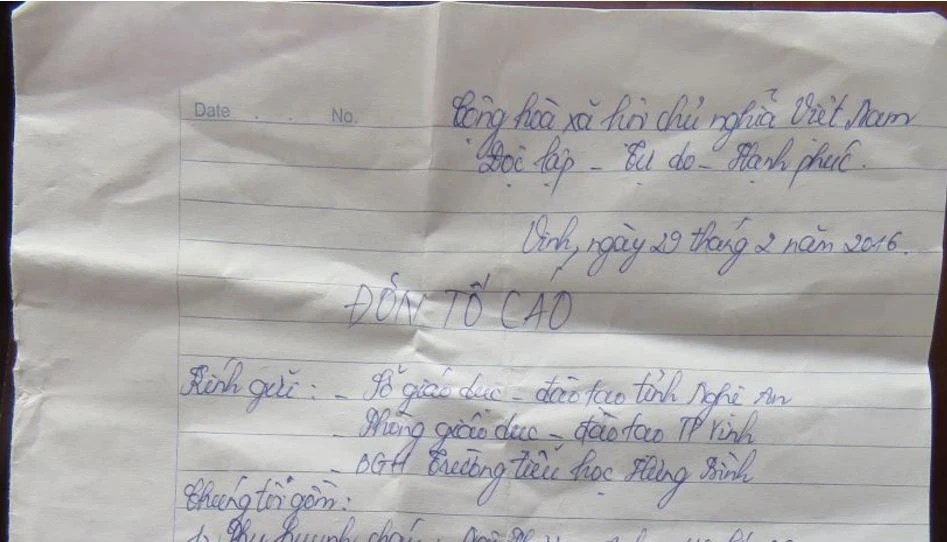 Date . . . No.
Cộng hòa xã hội chủ nghĩa Việt Nam
Độc lập - Tự do - Hạnh phúc.
Vinh, ngày 29 tháng 2 năm 2016.
ĐƠN TỐ CÁO
Kính gửi : - Sở giáo dục - đào tạo tỉnh Nghệ An
- Phòng giáo dục - đào tạo TP Vinh
- BGH Trường tiểu học Hưng Bình
Chúng tôi gồm :
1, Phụ huynh cháu :